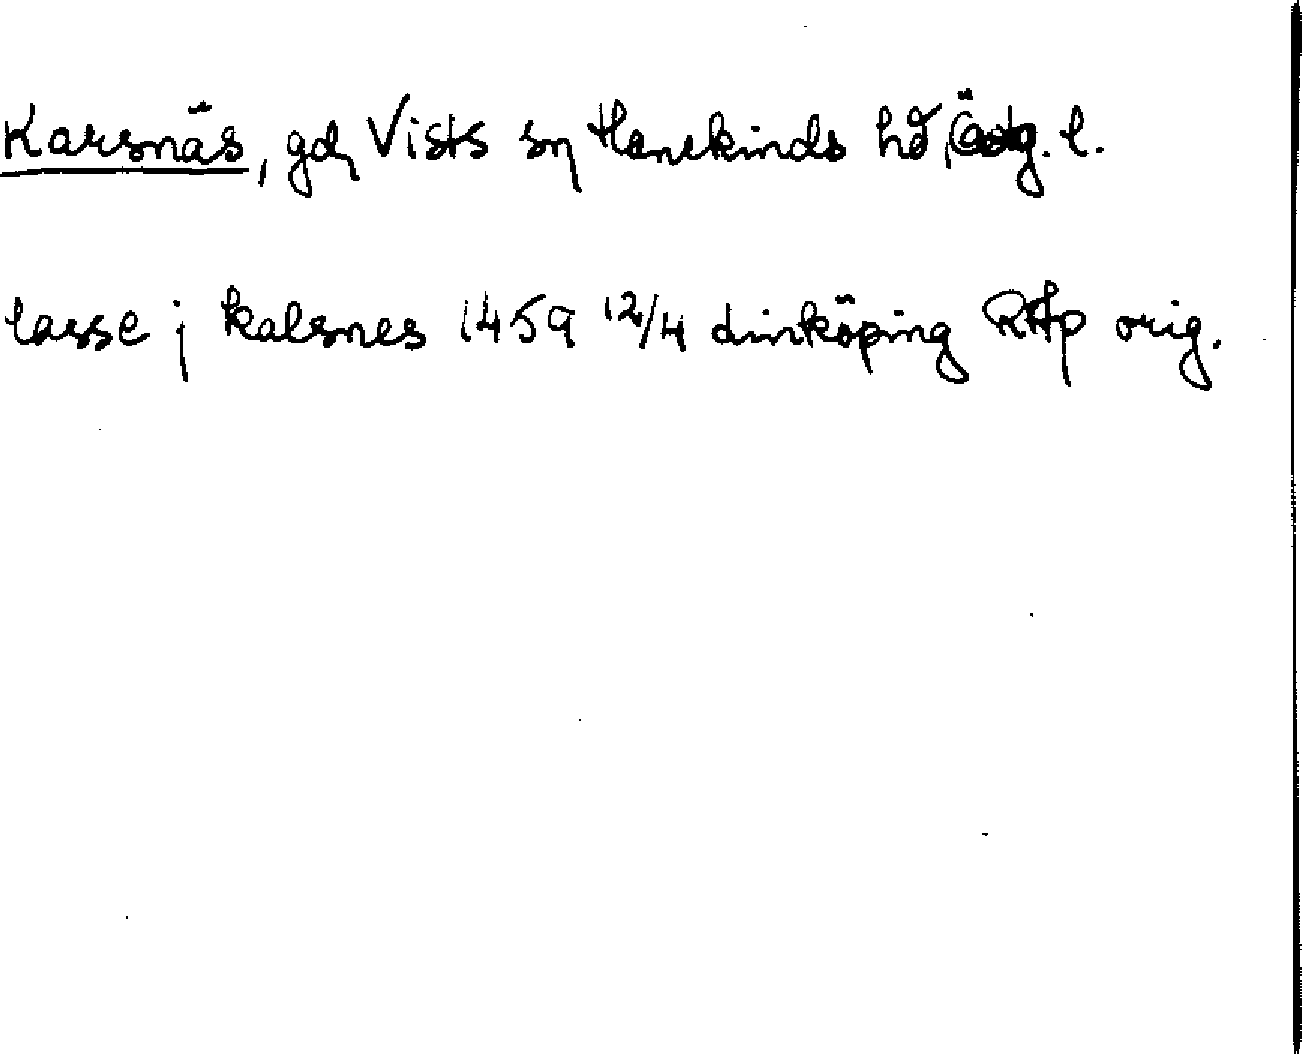 Karsnäs, gd, Vists sn Hanekinds hd, Östg. l.
lasse j kalsnes 1459 12/4 Linköping RAp orig.